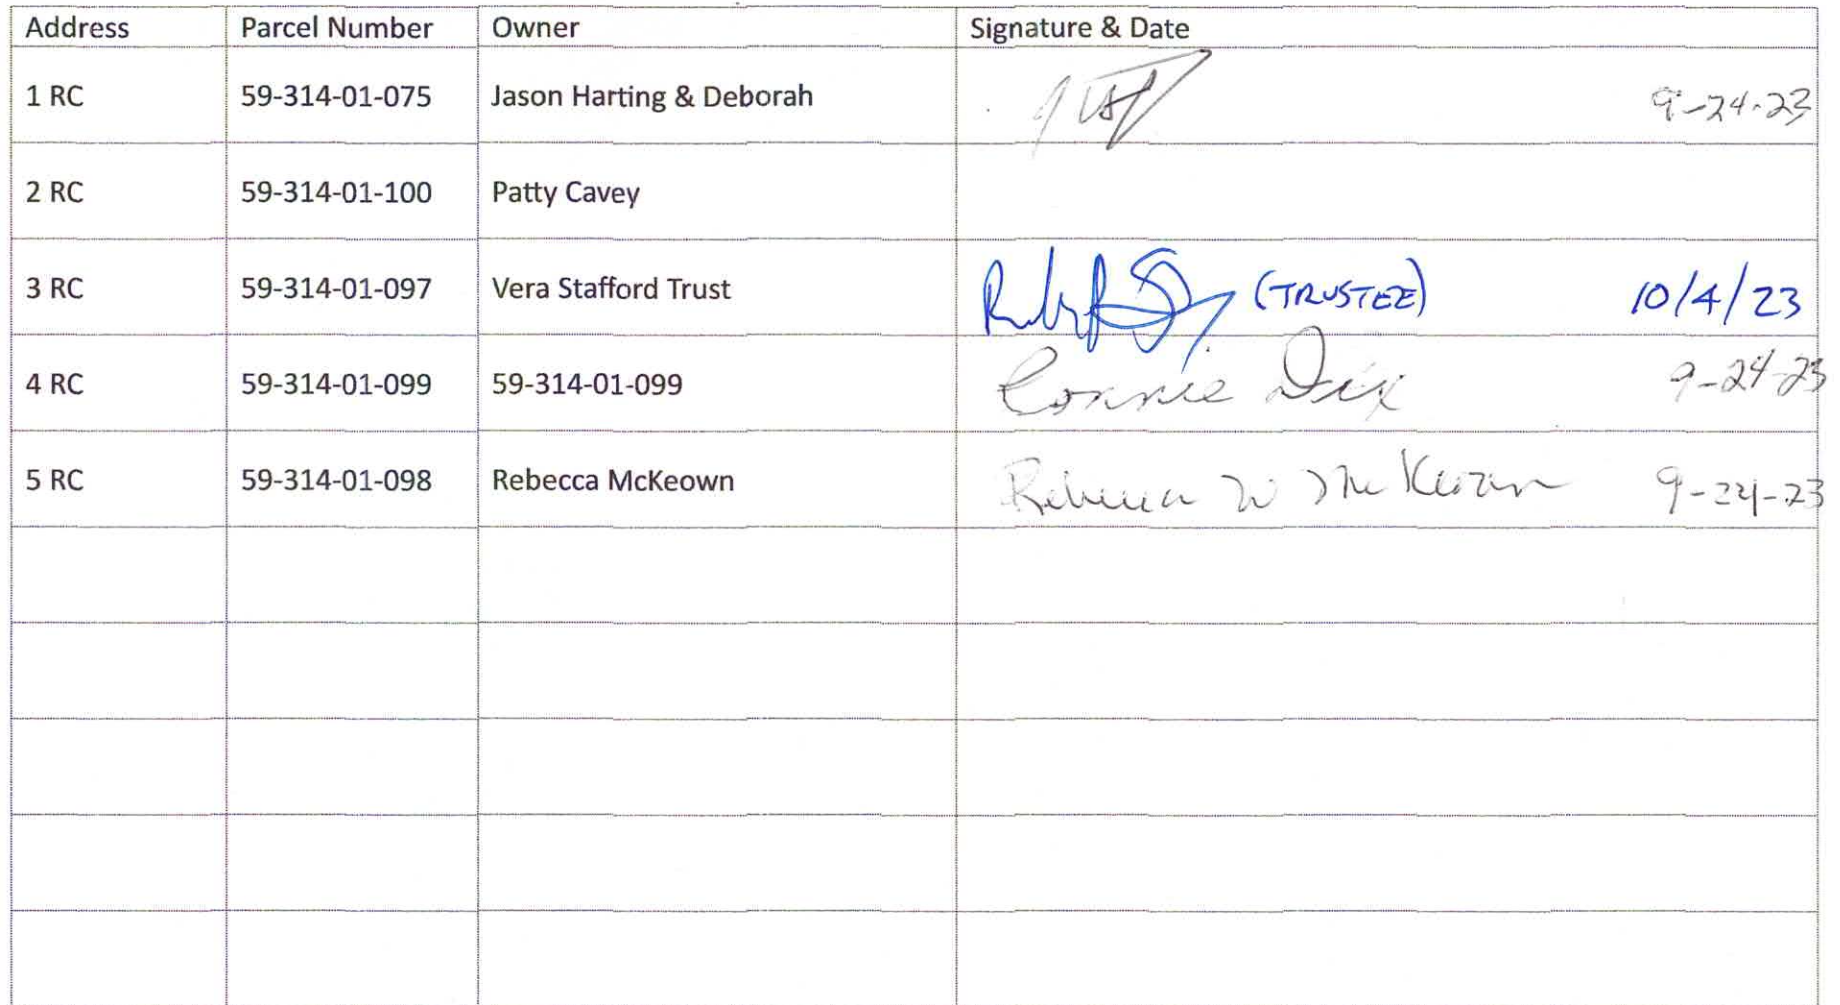 Address Parcel Number Owner Signature & Date
1 RC 59-314-01-075 Jason Harting & Deborah 9-24-23
2 RC 59-314-01-100 Patty Cavey
3 RC 59-314-01-097 Vera Stafford Trust (TRUSTEE) 10/4/23
4 RC 59-314-01-099 59-314-01-099 Connie Dix 9-24-23
5 RC 59-314-01-098 Rebecca McKeown Rebecca W McKeown 9-24-23